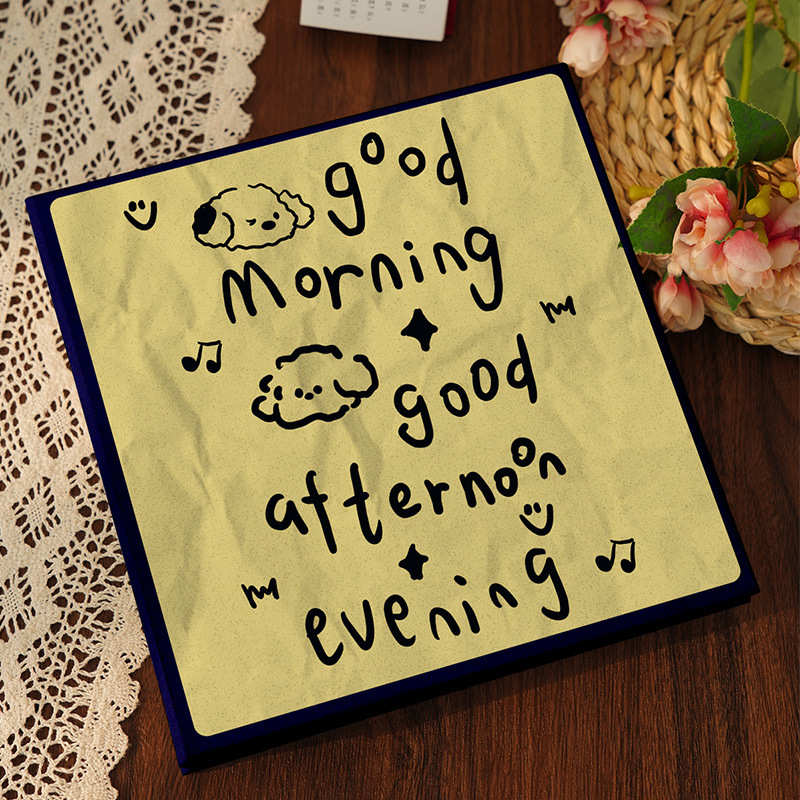 good
morning
good
afternoon
evening